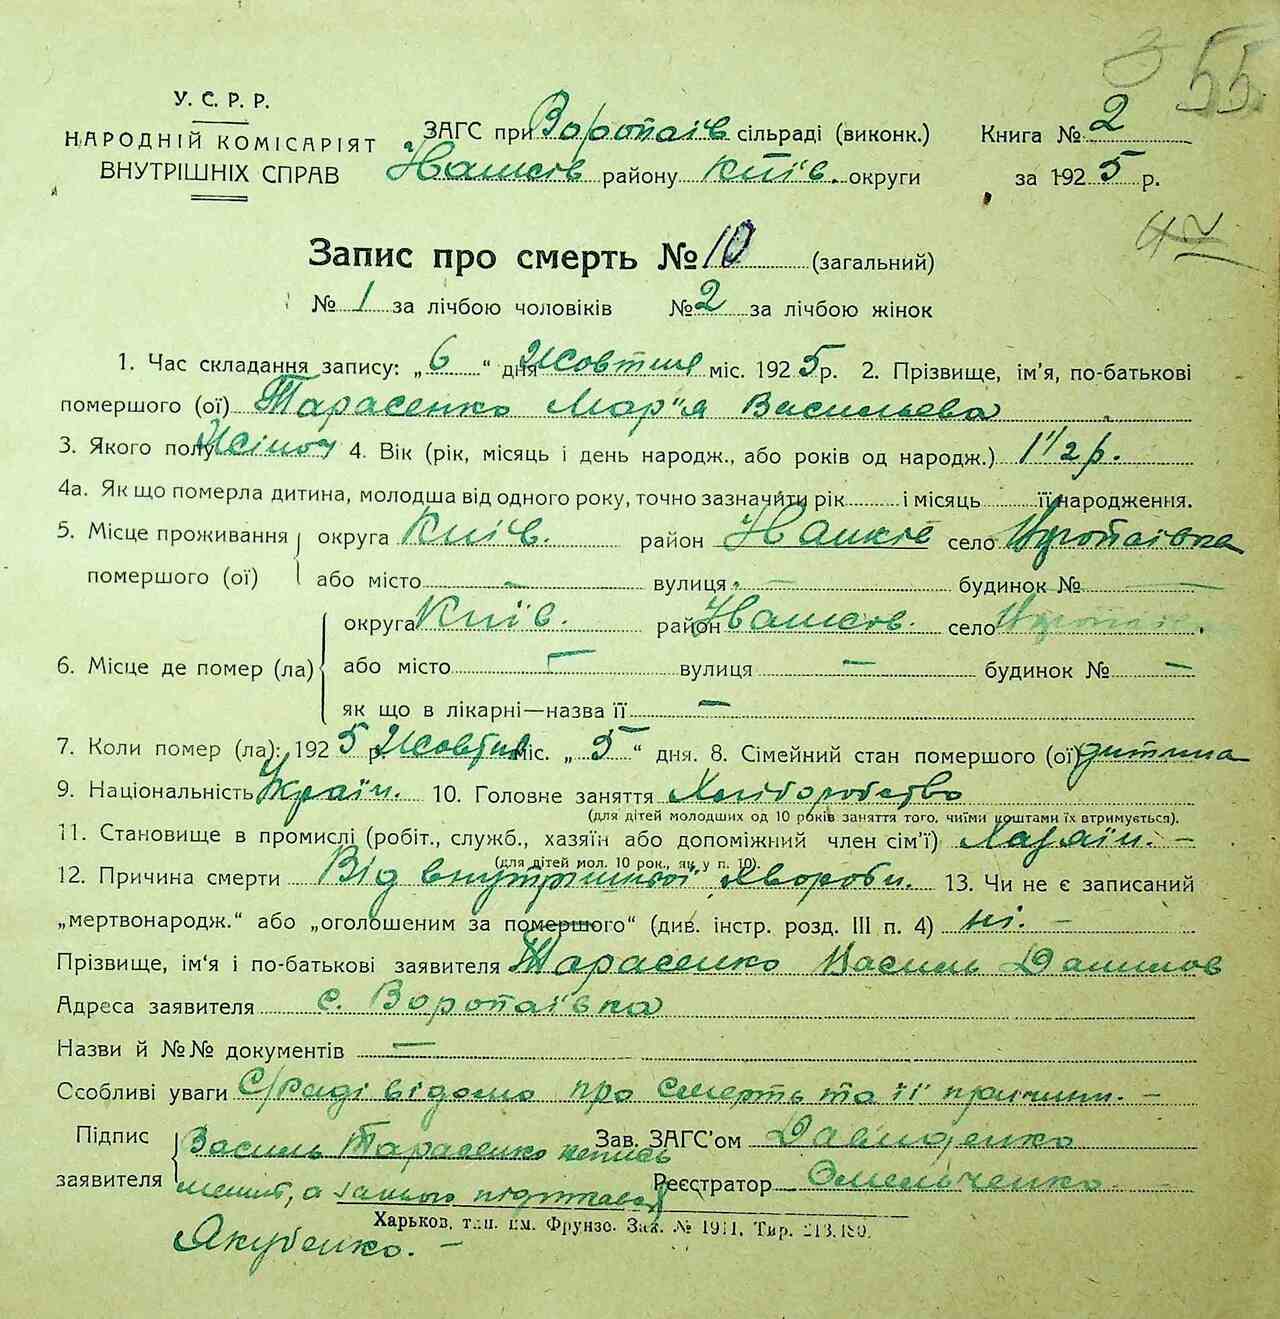 55.
У. С. Р. Р.
НАРОДНІЙ КОМІСАРІЯТ
ВНУТРІШНІХ СПРАВ
ЗАГС при Воропаїв сільраді (виконк.)
району Київ. округи
Книга № 2
за 1925 р.
Запис про смерть № 10 (загальний)
№ 1 за лічбою чоловіків № 2 за лічбою жінок
1. Час складання запису: „6“ дня Жовтня міс. 1925 р. 2. Прізвище, ім'я, по-батькові
помершого (ої) Тарасенко Мар'я Васильева
3. Якого полу Жіноч 4. Вік (рік, місяць і день народж., або років од народж.) 1 1/2 р.
4а. Як що померла дитина, молодша від одного року, точно зазначити рік і місяць її народження.
5. Місце проживання помершого (ої) округа Київ. район село Воропаївка
або місто — вулиця — будинок № —
6. Місце де помер (ла) округа Київ. район село
або місто — вулиця — будинок № —
як що в лікарні—назва її —
7. Коли помер (ла): 1925 р. Жовтня міс. „5“ дня. 8. Сімейний стан помершого (ої) дитина
9. Національність Україн. 10. Головне заняття Хліборобство
(для дітей молодших од 10 років заняття того, чиїми коштами їх втримується).
11. Становище в промислі (робіт., служб., хазяїн або допоміжний член сім'ї) Хазяїн. —
(для дітей мол. 10 рок., як у п. 10).
12. Причина смерти Від внутрішньої хвороби. 13. Чи не є записаний
„мертвонародж.“ або „оголошеним за помершого“ (див. інстр. розд. III п. 4) ні. —
Прізвище, ім'я і по-батькові заявителя Тарасенко Василь Данилов
Адреса заявителя с. Воропаївка
Назви й №№ документів —
Особливі уваги С/раді відомо про смерть та її причини. —
Підпис заявителя Василь Тарасенко
а за нього підписався
Якубенко. —
Зав. ЗАГС'ом Давиденко
Реєстратор Омельченко
Харьков, тип. им. Фрунзе. Зак. № 1911, Тир. 213.180.